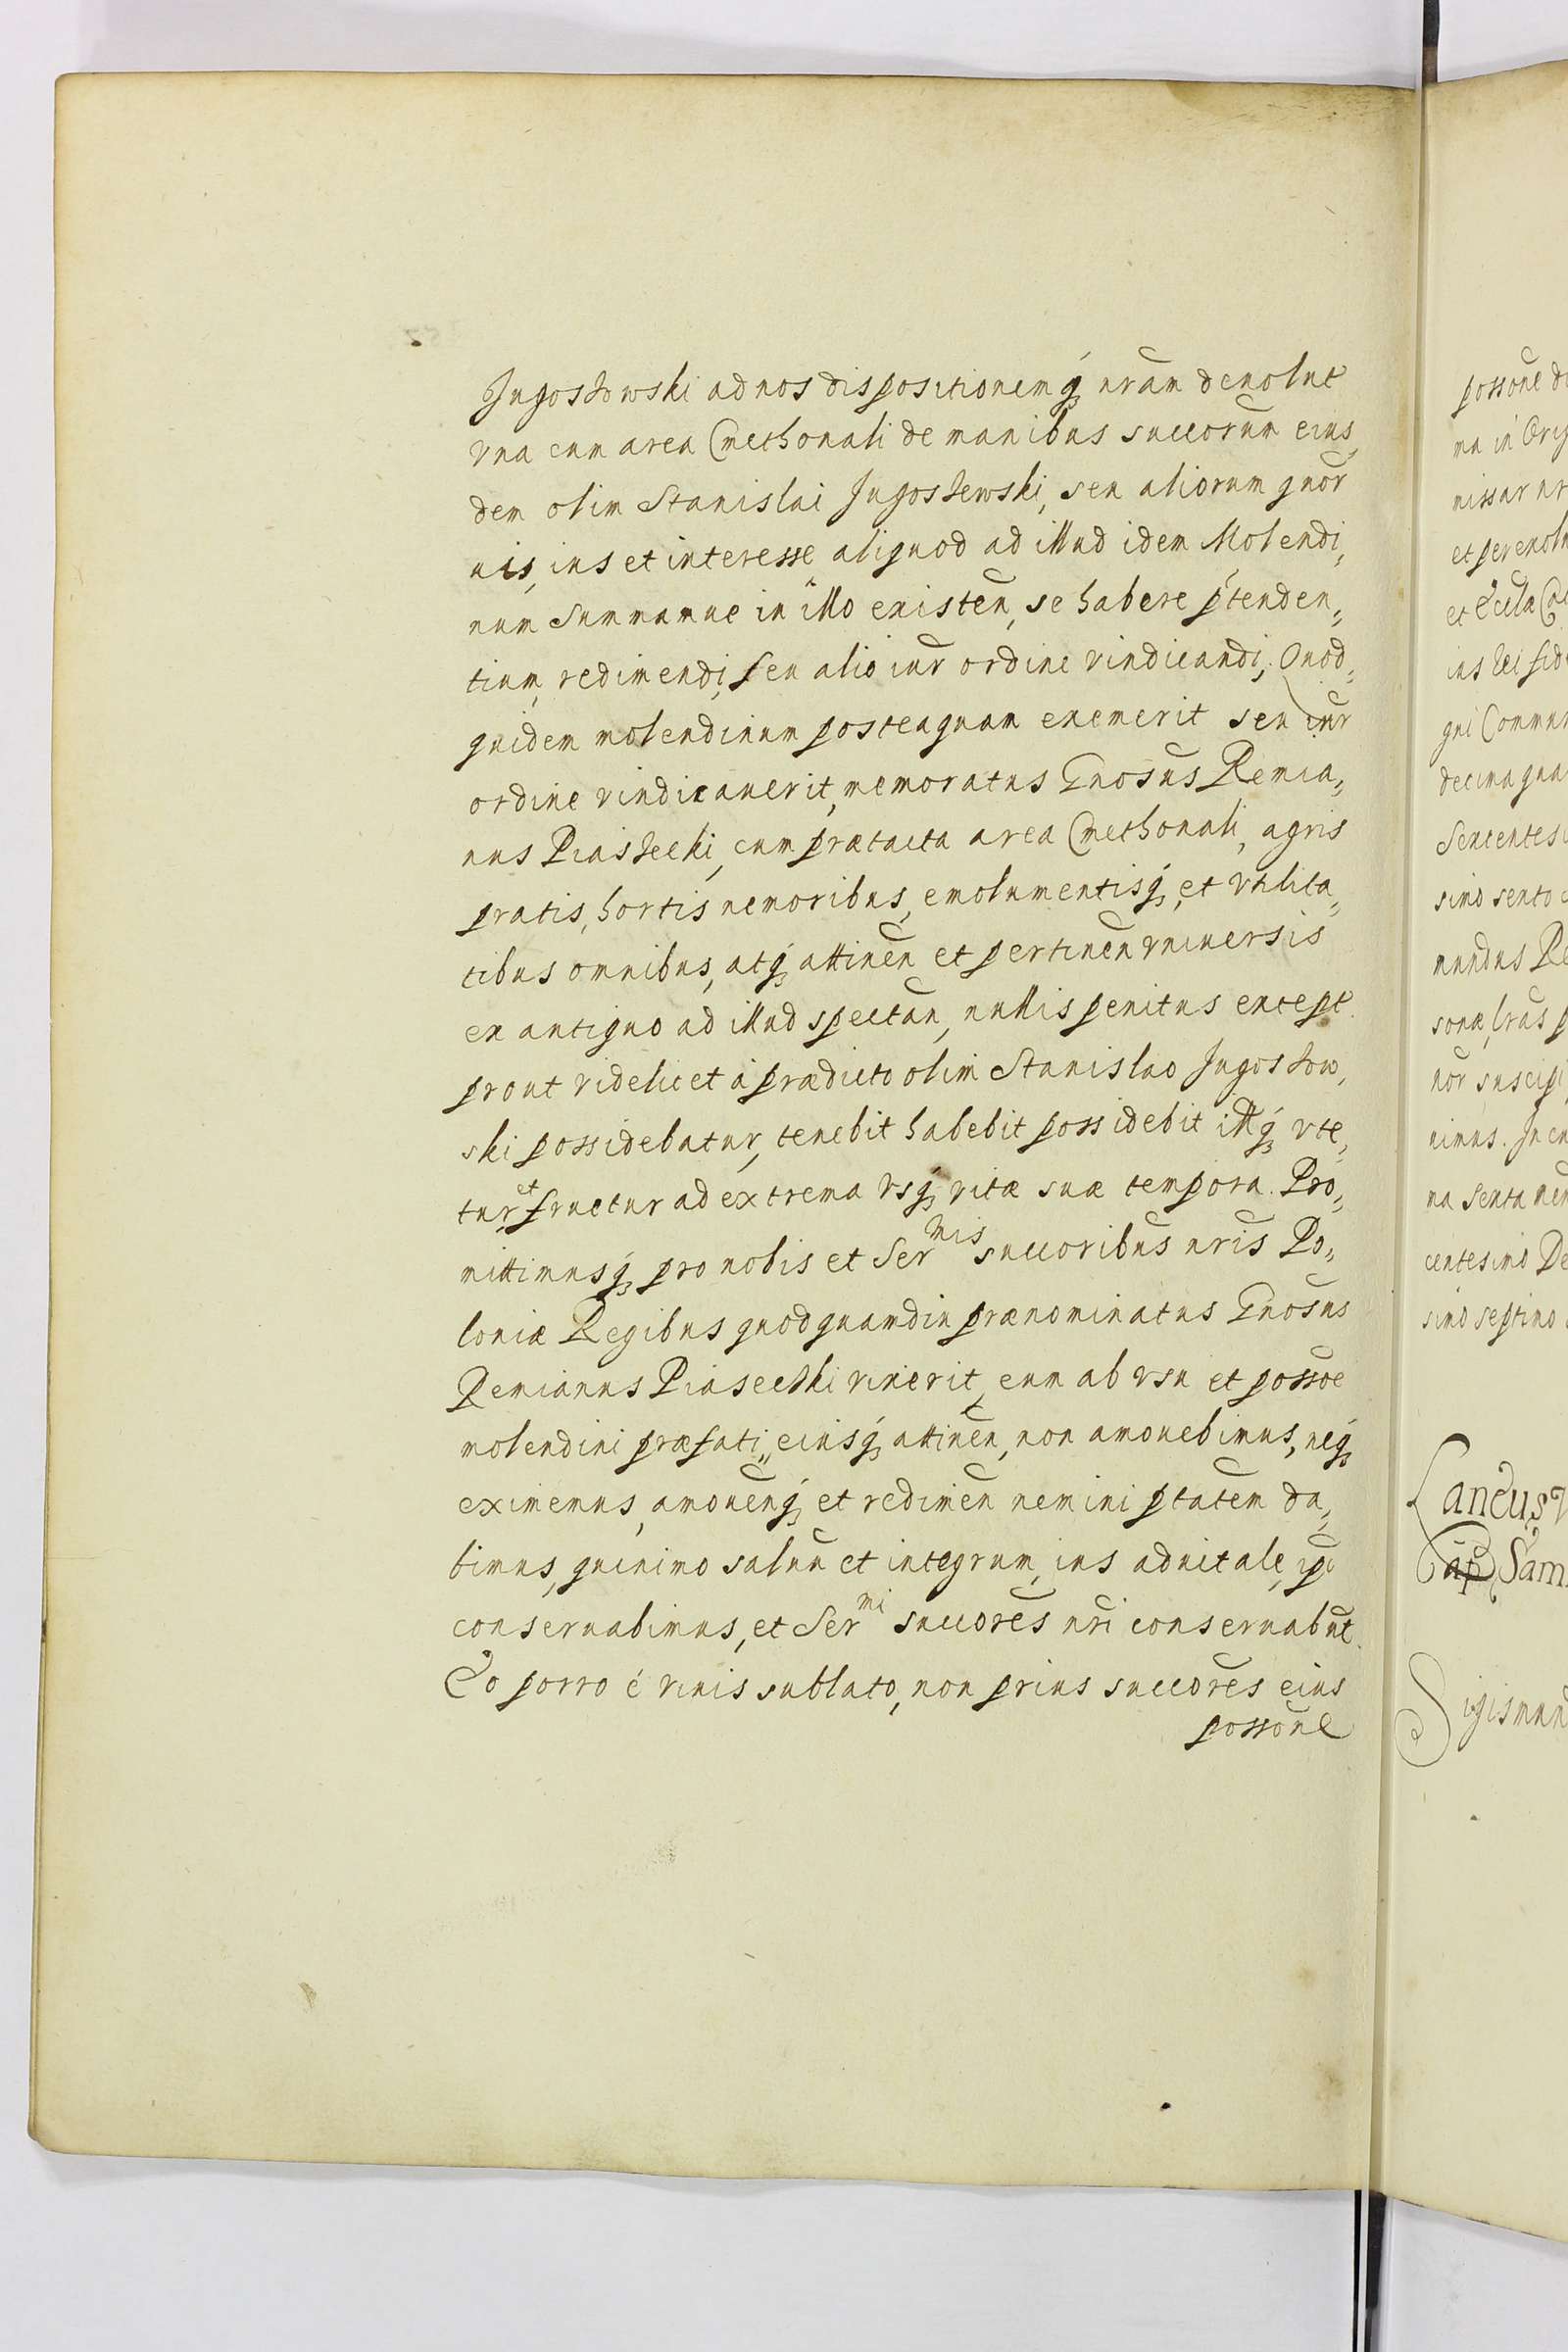 Jugoszowski ad nos dispositionemq̃ nrãm deuolut
vna cum area Cmethonali de manibus succorum̃ eius,
dem olim Stanislai Jugoszewski, seu aliorum quor̃
uis, ius et interesse aliquod ad illud idem Molendi,
num Summamue in illo existeñ, se habere ṕtenden„
tium, redimendi, seu alio iur̃ ordine vindicandi, Quod„
quidem molendinum posteaquam exemerit seu iur̃
ordine vindicauerit, memoratus Gnosũs Remia„
nus Piaszecki, cum prætacta area Cmethonali, agris
pratis, hortis nemoribus, emolumentisq̃, et vtilita„
tibus omnibus, atq̃ attineñ et pertineñ vniuersis
ex antiquo ad illud spectañ, nullis penitus except.
prout videlicet à prædicto olim Stanislao Jugoszow,
ski possidebatur, tenebit habebit possidebit illq̃ vte,
tur et fruetur ad extrema vsq̃ vitæ suæ tempora. Pro„
mittimusq̃ pro nobis et Ser mis succoribũs nrĩs Po„
loniæ Regibus quod quamdiu prænominatus Gnosũs
Remianus Piaseczki vixerit, eum ab vsu et possõe
molendini præfati, eiusq̃ attineñ, non amouebimus, neq̃
eximemus, amoueñq̃ et redimeñ nemini ptatem̃ da„
bimus, quinimo saluũ et integrum, ius aduitale, ip̃i
conseruabimus, et Ser mi succorẽs nrĩ conseruabũt.
Eo porro è viuis sublato, non prius succorẽs eius
possonẽ
possonẽ
ma in
et
gui
decima
simo sento
mundus
sonæ, lrãs
nor̃ suscipi
nimus. In
centesimo
simo septimo
Sam
Sigismun